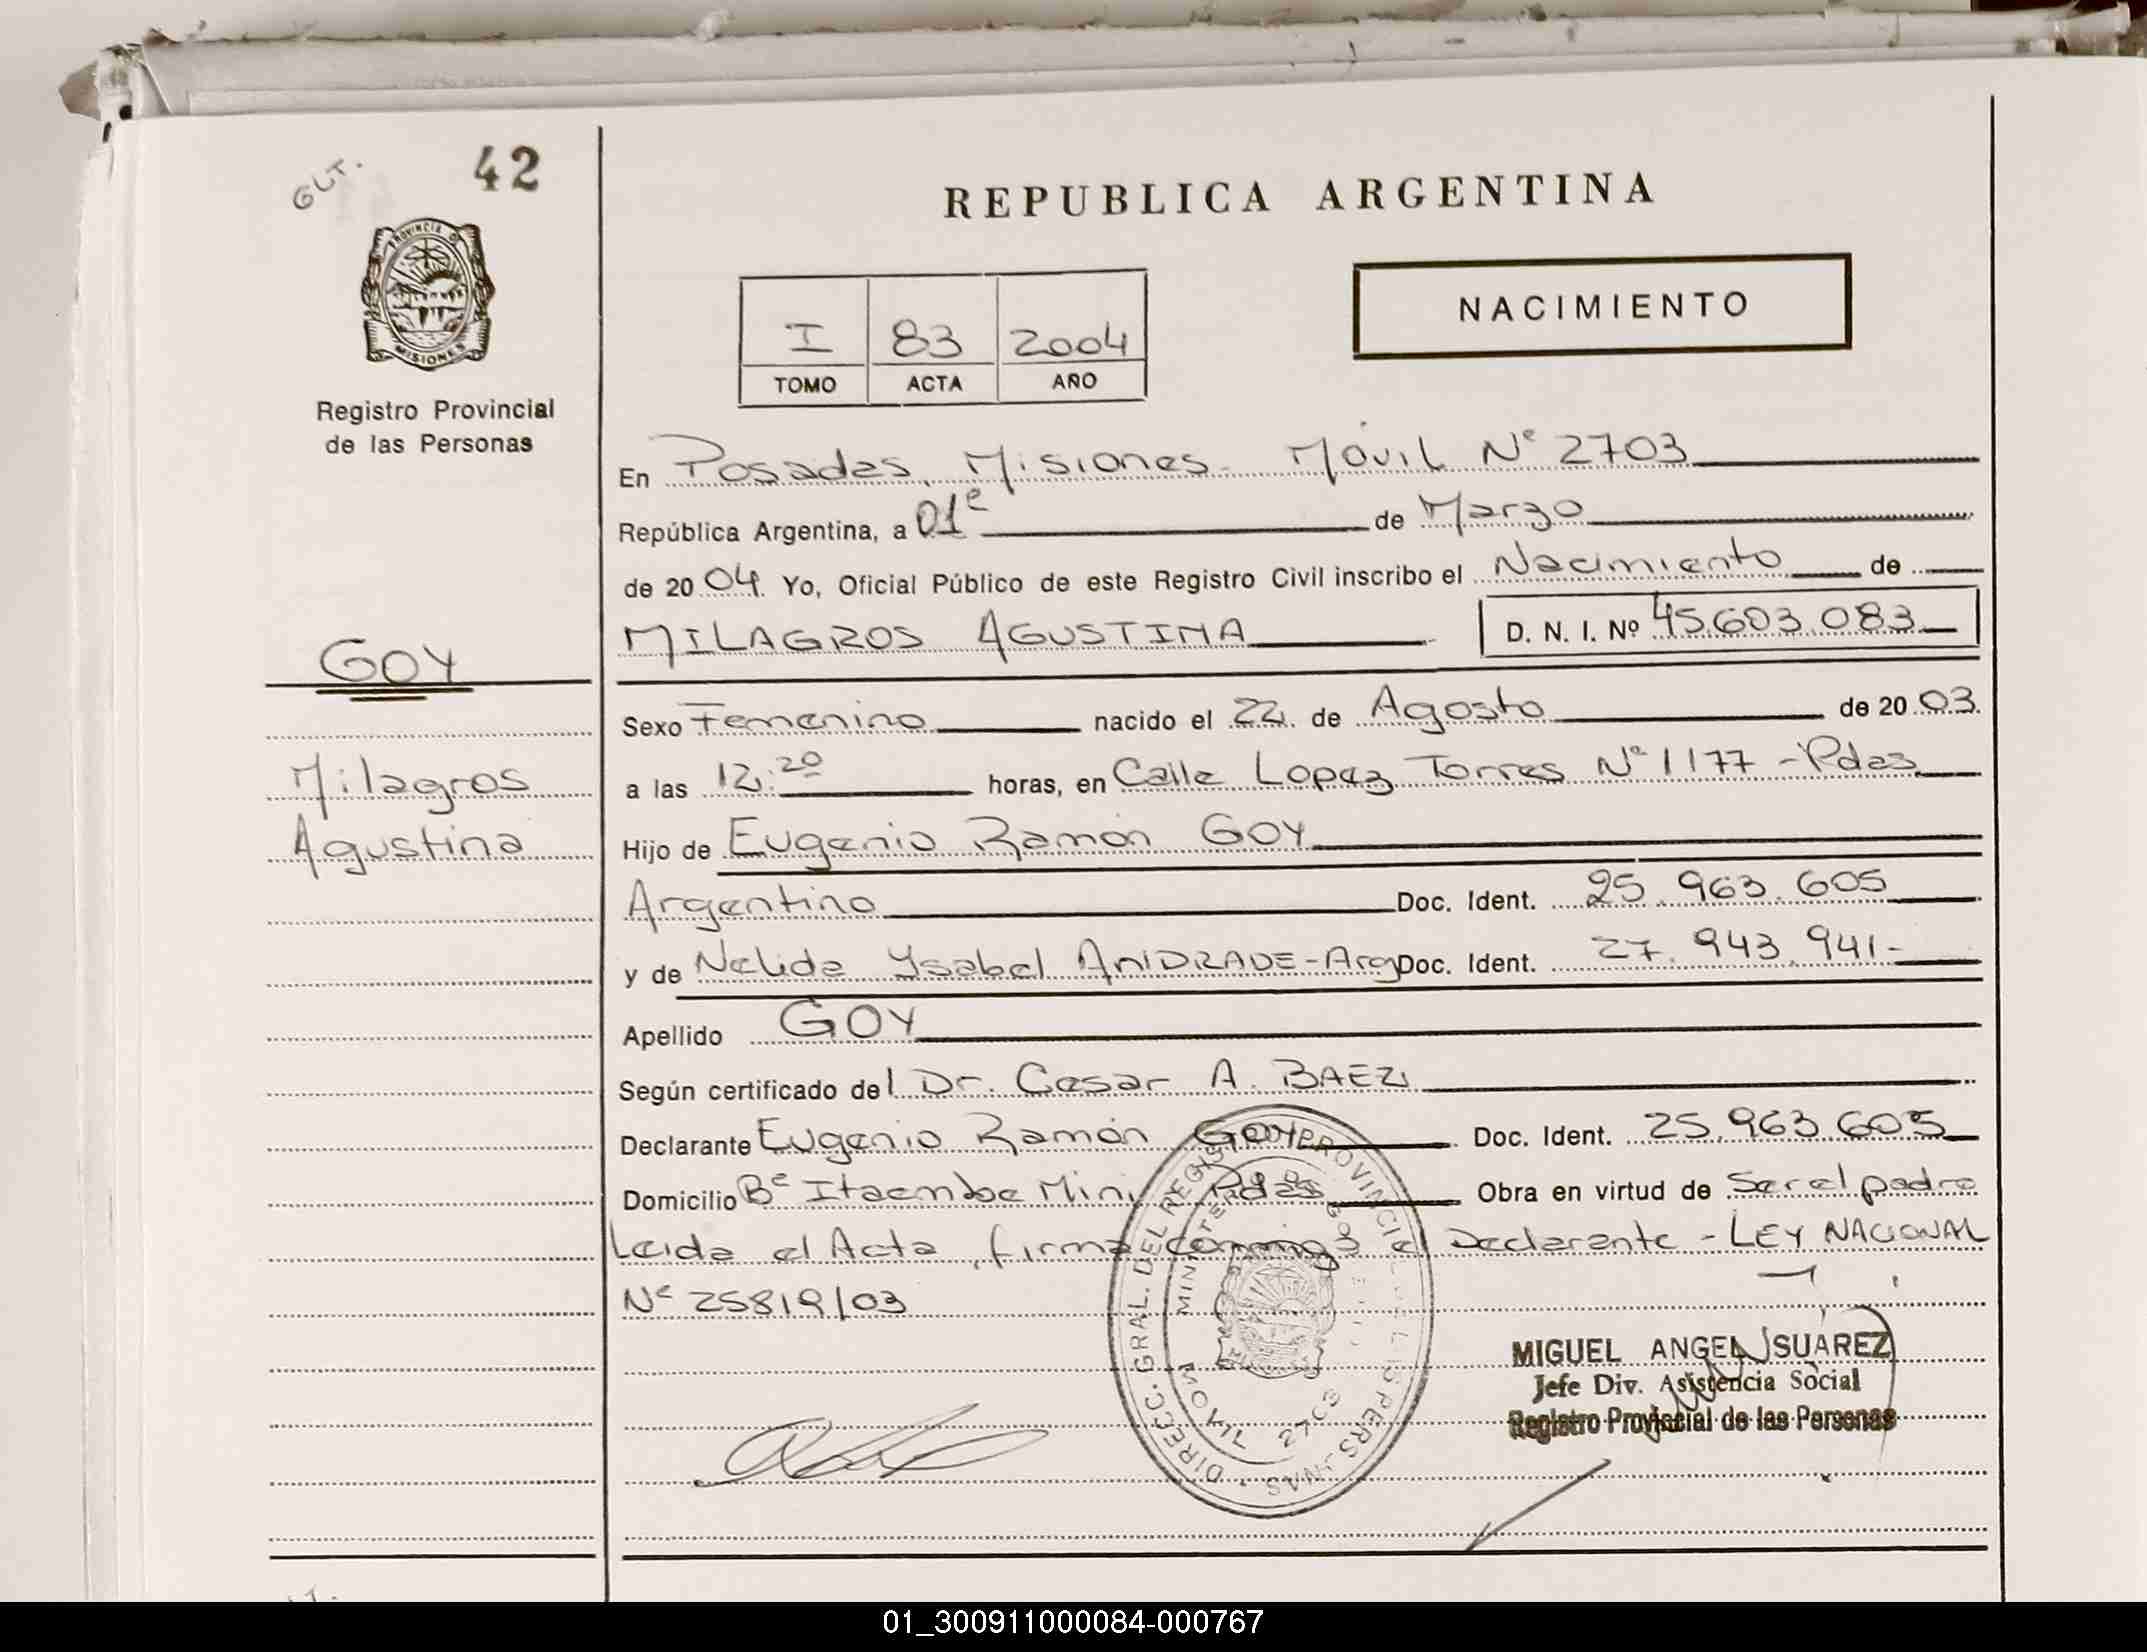 GUT.
42
PROVINCIA D
MISIONES
Registro Provincial
de las Personas
REPUBLICA ARGENTINA
NACIMIENTO
I 83 2004
TOMO ACTA AÑO
En Posadas, Misiones - Móvil Nº 2703
República Argentina, a 01º de Marzo
de 2004. Yo, Oficial Público de este Registro Civil inscribo el Nacimiento de
MILAGROS AGUSTINA D. N. I. Nº 45.603.083
GOY
Sexo Femenino nacido el 22 de Agosto de 2003.
a las 12:20 horas, en Calle Lopez Torres Nº 1177 - Pdas
Milagros
Agustina
Hijo de Eugenio Ramón GOY
Argentino Doc. Ident. 25.963.605
y de Nelida Ysabel ANDRADE - Arg Doc. Ident. 27.943.941-
Apellido GOY
Según certificado del Dr. Cesar A. BAEZ
Declarante Eugenio Ramón GOY Doc. Ident. 25.963.605
Domicilio Bº Itaembe Mini Pdas Obra en virtud de Ser el padre
Leida el Acta, firma conmigo el Declarante - LEY NACIONAL
Nº 25819/03
DIRECC. GRAL. DEL REGISTRO PROVINCIAL DE LAS PERSONAS
MOVIL 2703
MIGUEL ANGEL SUAREZ
Jefe Div. Asistencia Social
Registro Provincial de las Personas
01_300911000084-000767